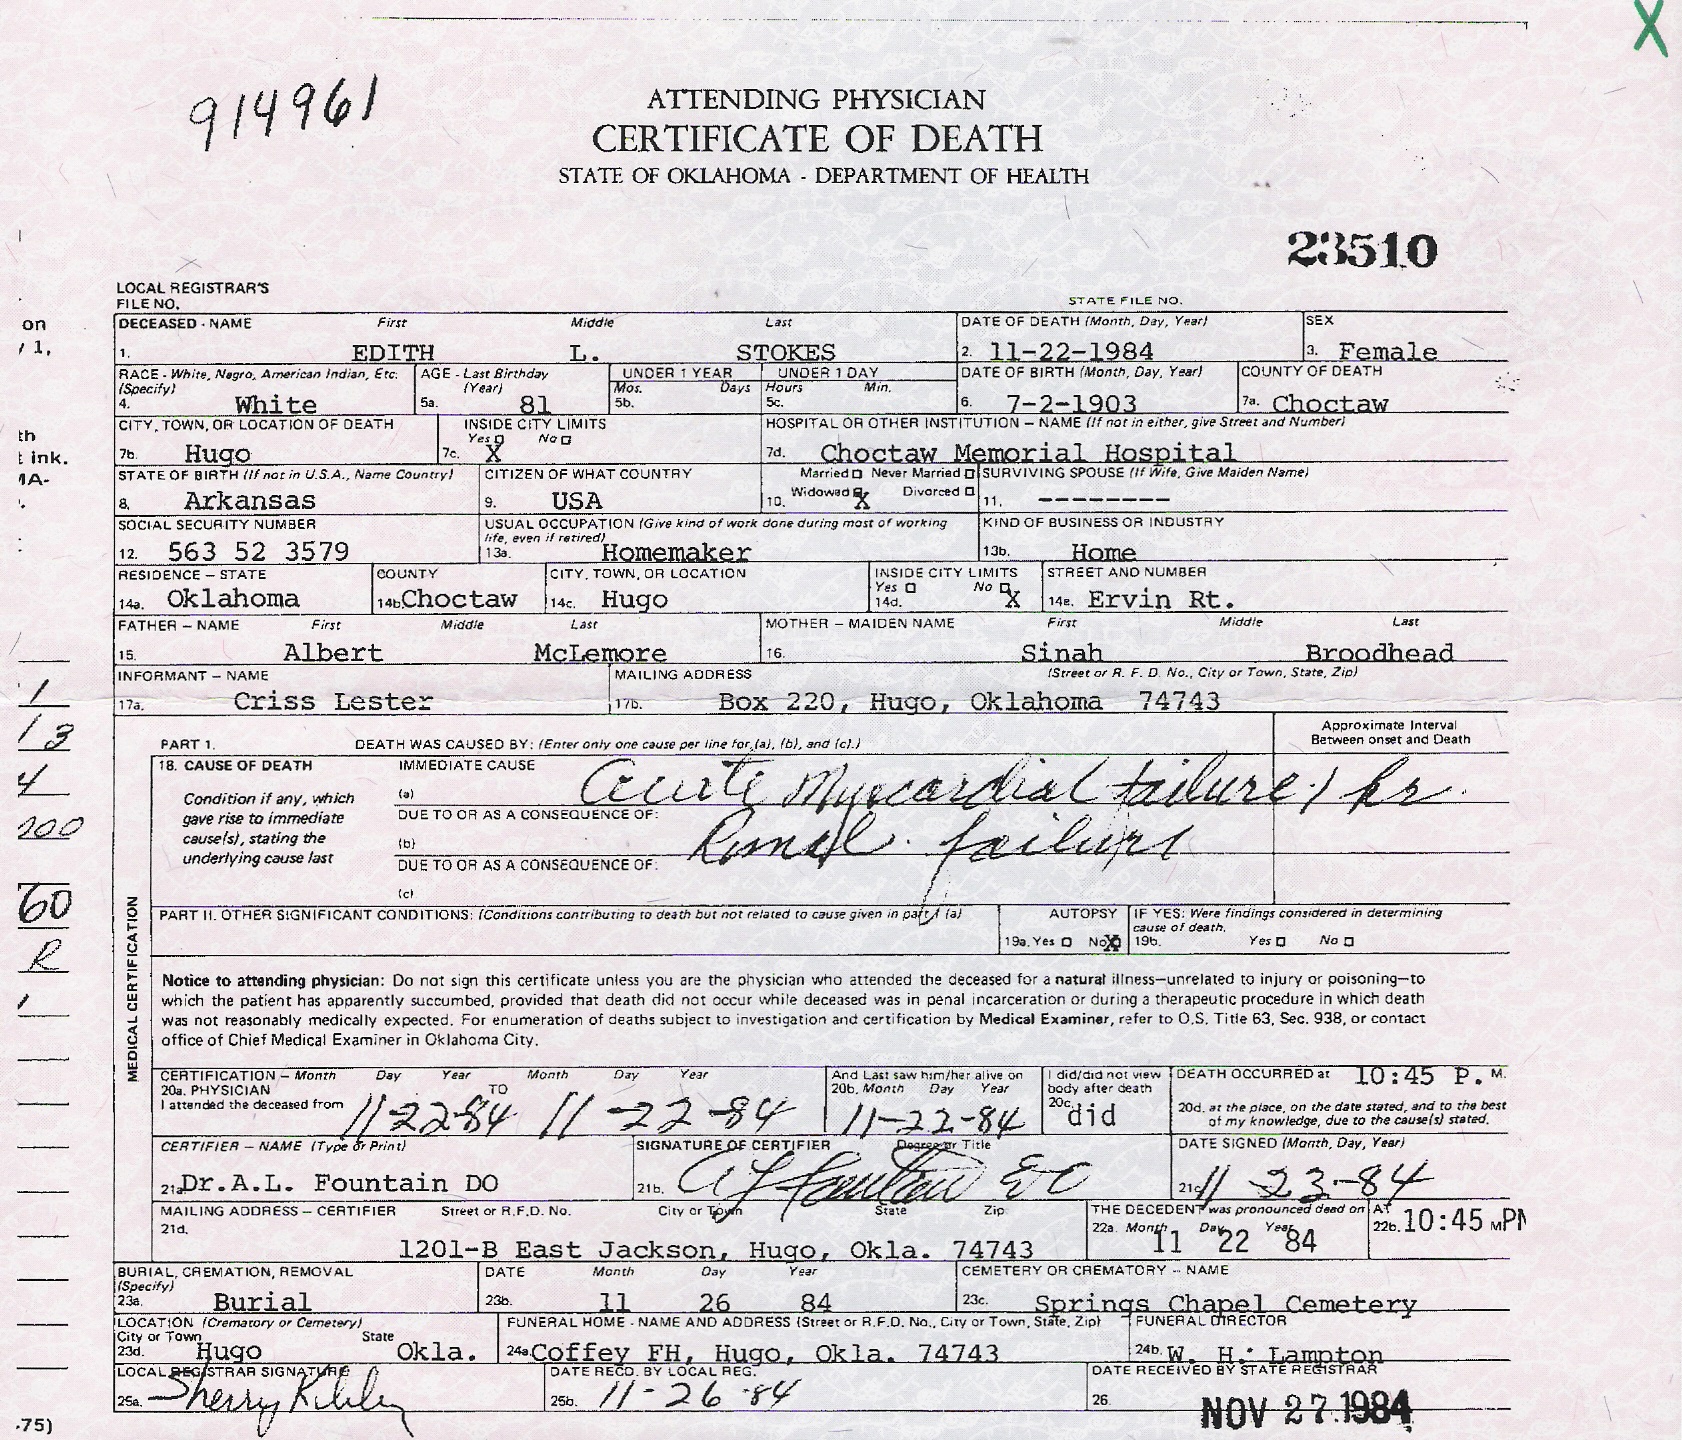 X
914961
ATTENDING PHYSICIAN
CERTIFICATE OF DEATH
STATE OF OKLAHOMA - DEPARTMENT OF HEALTH
23510
LOCAL REGISTRAR'S
FILE NO.
STATE FILE NO.
on
/ 1,
DECEASED - NAME First Middle Last
1. EDITH L. STOKES
DATE OF DEATH (Month, Day, Year)
2. 11-22-1984
SEX
3. Female
RACE - White, Negro, American Indian, Etc.
(Specify)
4. White
AGE - Last Birthday
(Year)
5a. 81
UNDER 1 YEAR
Mos. Days
5b.
UNDER 1 DAY
Hours Min.
5c.
DATE OF BIRTH (Month, Day, Year)
6. 7-2-1903
COUNTY OF DEATH
7a. Choctaw
th
t ink.
MA-
CITY, TOWN, OR LOCATION OF DEATH
7b. Hugo
INSIDE CITY LIMITS
Yes No
7c. X
HOSPITAL OR OTHER INSTITUTION – NAME (If not in either, give Street and Number)
7d. Choctaw Memorial Hospital
STATE OF BIRTH (If not in U.S.A., Name Country)
8. Arkansas
CITIZEN OF WHAT COUNTRY
9. USA
Married Never Married
10. Widowed X Divorced
SURVIVING SPOUSE (If Wife, Give Maiden Name)
11. ---------
SOCIAL SECURITY NUMBER
12. 563 52 3579
USUAL OCCUPATION (Give kind of work done during most of working
life, even if retired)
13a. Homemaker
KIND OF BUSINESS OR INDUSTRY
13b. Home
RESIDENCE – STATE
14a. Oklahoma
COUNTY
14b. Choctaw
CITY, TOWN, OR LOCATION
14c. Hugo
INSIDE CITY LIMITS
Yes No
14d. X
STREET AND NUMBER
14e. Ervin Rt.
FATHER – NAME First Middle Last
15. Albert McLemore
MOTHER – MAIDEN NAME First Middle Last
16. Sinah Broodhead
INFORMANT – NAME
17a. Criss Lester
MAILING ADDRESS (Street or R. F. D. No., City or Town, State, Zip)
17b. Box 220, Hugo, Oklahoma 74743
1
13
4
200
60
R
1
MEDICAL CERTIFICATION
PART 1. DEATH WAS CAUSED BY: (Enter only one cause per line for (a), (b), and (c).)
Approximate Interval
Between onset and Death
18. CAUSE OF DEATH
Condition if any, which
gave rise to immediate
cause(s), stating the
underlying cause last
IMMEDIATE CAUSE
(a) Acute Myocardial failure 1 hr.
DUE TO OR AS A CONSEQUENCE OF:
(b) Renal failure
DUE TO OR AS A CONSEQUENCE OF:
(c)
PART II. OTHER SIGNIFICANT CONDITIONS: (Conditions contributing to death but not related to cause given in part I (a)
AUTOPSY
19a. Yes No X
IF YES: Were findings considered in determining
cause of death.
19b. Yes No
Notice to attending physician: Do not sign this certificate unless you are the physician who attended the deceased for a natural illness—unrelated to injury or poisoning—to
which the patient has apparently succumbed, provided that death did not occur while deceased was in penal incarceration or during a therapeutic procedure in which death
was not reasonably medically expected. For enumeration of deaths subject to investigation and certification by Medical Examiner, refer to O.S. Title 63, Sec. 938, or contact
office of Chief Medical Examiner in Oklahoma City.
CERTIFICATION – Month Day Year Month Day Year
20a. PHYSICIAN TO
I attended the deceased from 11-22-84 11-22-84
And Last saw him/her alive on
20b. Month Day Year
11-22-84
I did/did not view
body after death
20c. did
DEATH OCCURRED at 10:45 P. M.
20d. at the place, on the date stated, and to the best
of my knowledge, due to the cause(s) stated.
CERTIFIER – NAME (Type or Print)
21a. Dr. A.L. Fountain DO
SIGNATURE OF CERTIFIER Degree or Title
21b. A L Fountain DO
DATE SIGNED (Month, Day, Year)
21c. 11-23-84
MAILING ADDRESS – CERTIFIER Street or R.F.D. No. City or Town State Zip
21d.
1201-B East Jackson, Hugo, Okla. 74743
THE DECEDENT was pronounced dead on
22a. Month Day Year
11 22 84
AT
22b. 10:45 M PM
BURIAL, CREMATION, REMOVAL
(Specify)
23a. Burial
DATE Month Day Year
23b. 11 26 84
CEMETERY OR CREMATORY – NAME
23c. Springs Chapel Cemetery
LOCATION (Crematory or Cemetery)
City or Town State
23d. Hugo Okla.
FUNERAL HOME - NAME AND ADDRESS (Street or R.F.D. No., City or Town, State, Zip)
24a. Coffey FH, Hugo, Okla. 74743
FUNERAL DIRECTOR
24b. W. H. Lampton
LOCAL REGISTRAR SIGNATURE
25a. Sherry
DATE RECD. BY LOCAL REG.
25b. 11-26-84
DATE RECEIVED BY STATE REGISTRAR
26. NOV 27 1984
-75)